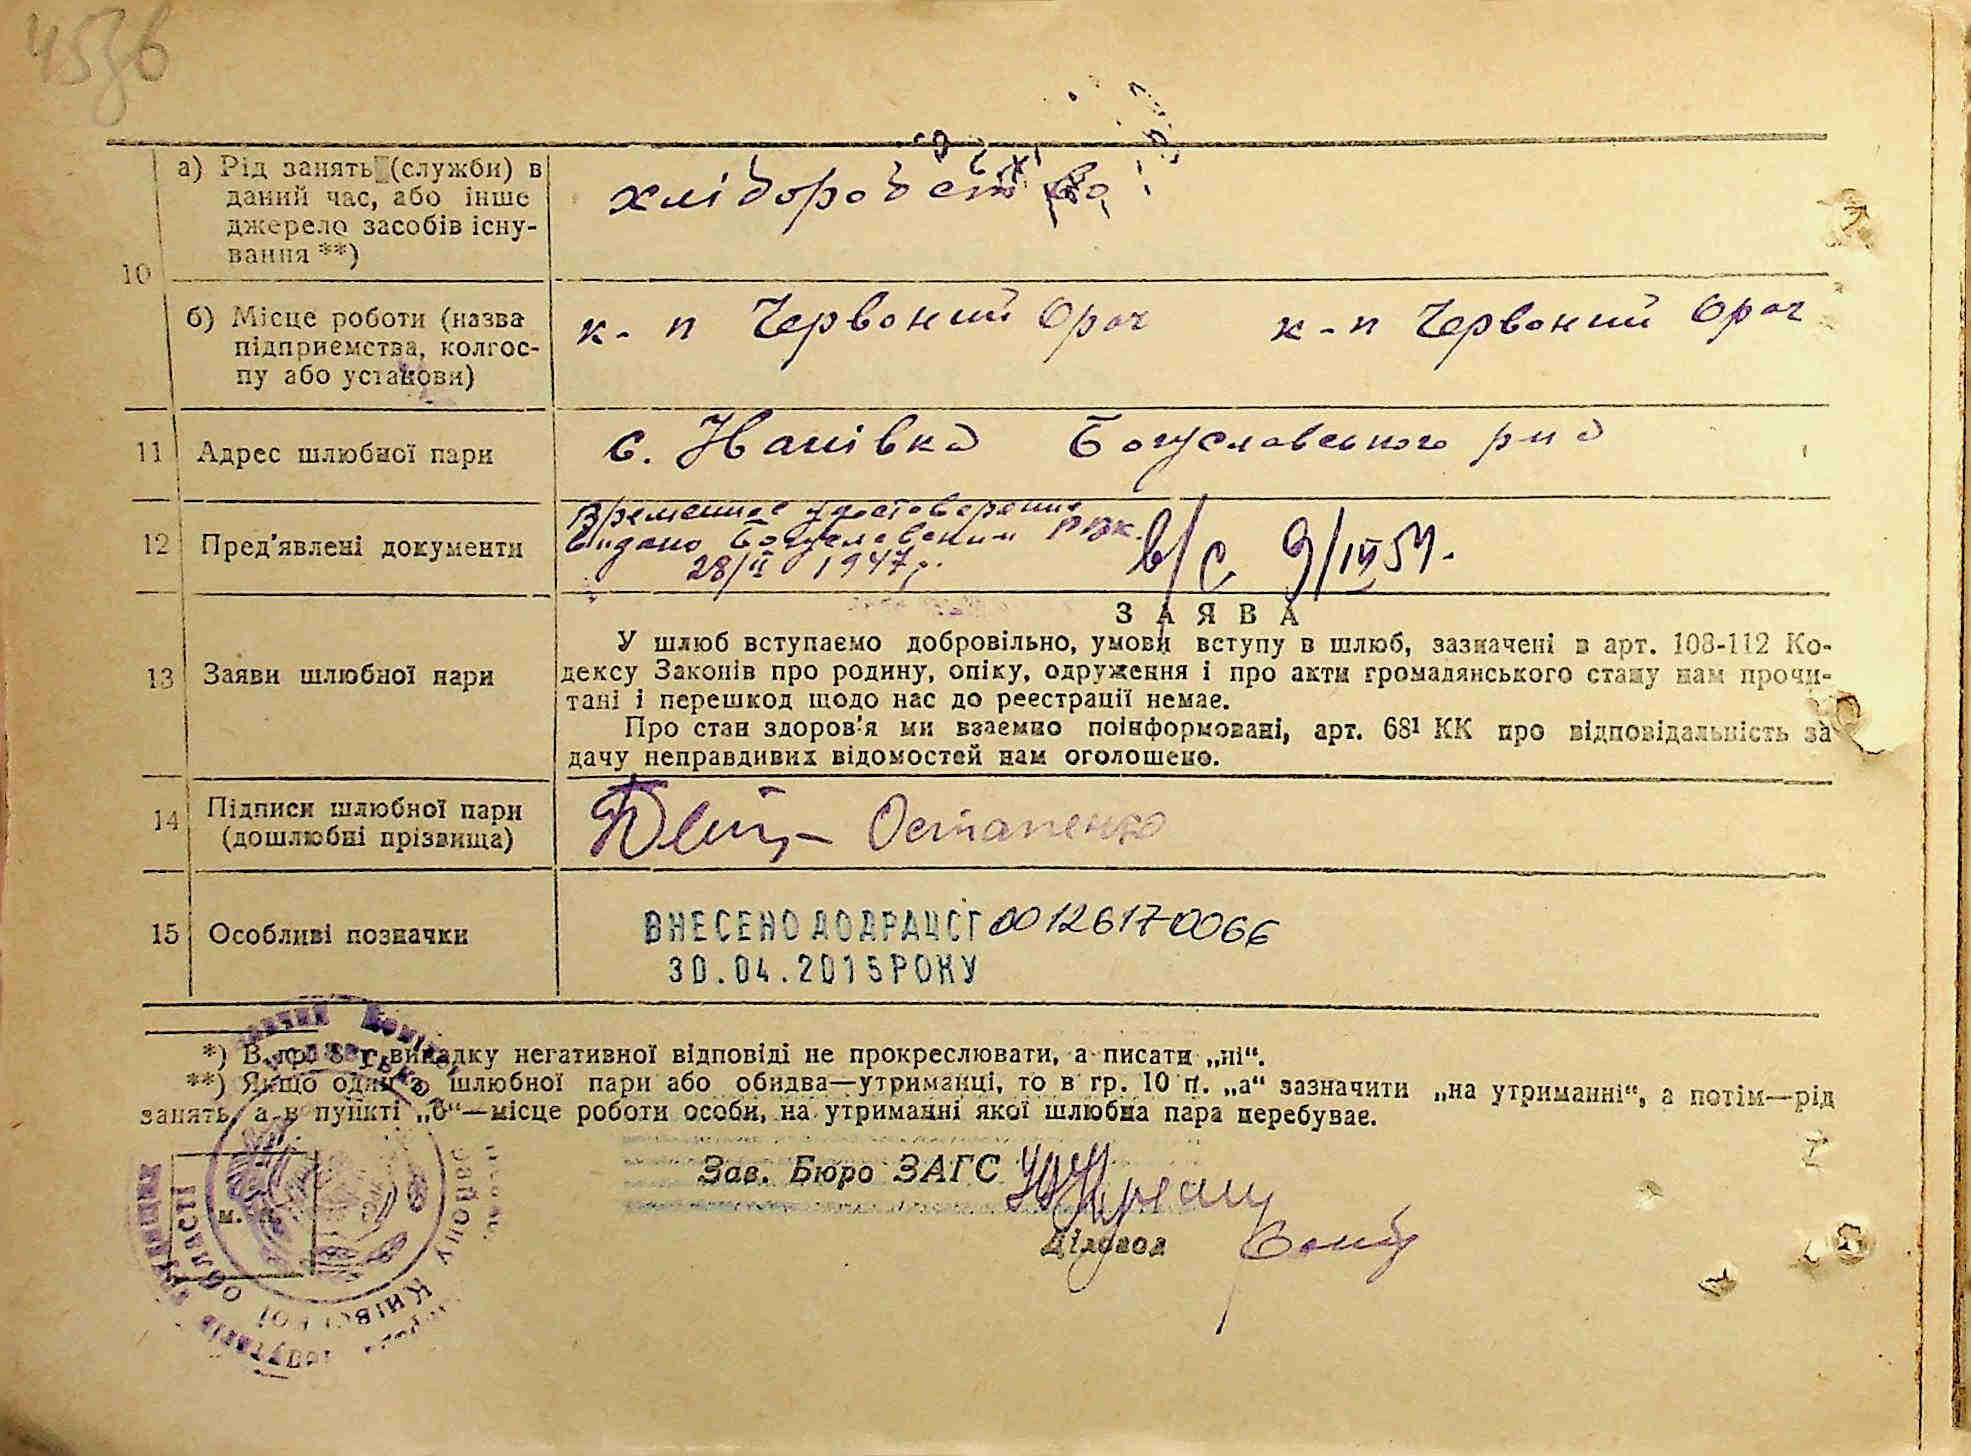 а) Рід занять (служби) в
даний час, або інше
джерело засобів існу-
вання **)
хліборобство
10
б) Місце роботи (назва
підприємства, колгос-
пу або установи)
к-п Червоний Орач к-п Червоний Орач
11 Адрес шлюбної пари
с. Іванівка Богуславського р-на
12 Пред'явлені документи
Временное удостоверение
видано Богуславским РВК.
28/II 1947 р.
в/с 9/III 51.
ЗАЯВА
13 Заяви шлюбної пари
У шлюб вступаємо добровільно, умови вступу в шлюб, зазначені в арт. 108-112 Ко-
дексу Законів про родину, опіку, одруження і про акти громадянського стану нам прочи-
тані і перешкод щодо нас до реестрації немає.
Про стан здоров'я ми взаємно поінформовані, арт. 68¹ КК про відповідальність за
дачу неправдивих відомостей нам оголошено.
14 Підписи шлюбної пари
(дошлюбні прізвища)
Остапенко
15 Особливі позначки
ВНЕСЕНО ДО ДРАЦСГ 00126170066
30.04.2015 РОКУ
*) В гр. 8 у випадку негативної відповіді не прокреслювати, а писати „ні“.
**) Якщо один з шлюбної пари або обидва—утриманці, то в гр. 10 п. „а“ зазначити „на утриманні“, а потім—рід
занять, а в пункті „б“—місце роботи особи, на утриманні якої шлюбна пара перебуває.
Зав. Бюро ЗАГС
Діловод
району Київської області